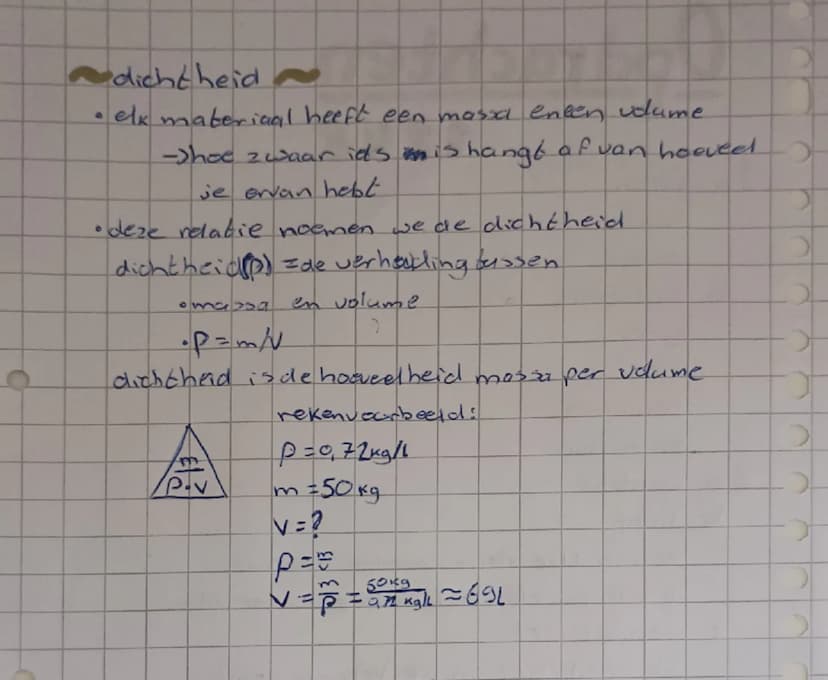 ~dichtheid~
• elk materiaal heeft een massa en een volume
→hoe zwaar iets is hangt af van hoeveel
je ervan hebt
• deze relatie noemen we de dichtheid
dichtheid(ρ) = de verhouding tussen
• massa en volume
• ρ = m/V
dichtheid is de hoeveelheid massa per volume
rekenvoorbeeld:
m
ρ·v
ρ = 0,72kg/L
m = 50 kg
V = ?
ρ = m/v
V = m/ρ = 50kg/0,72 kg/L ≈ 69L